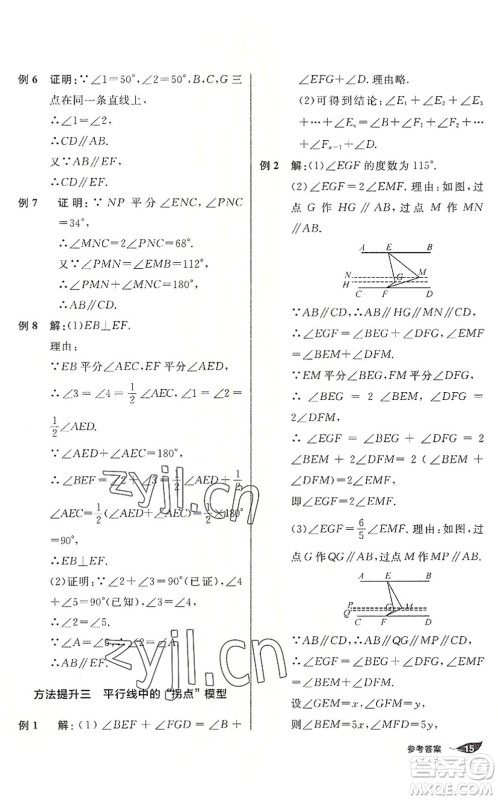 例 6 证明：∵∠1=50°，B、C、G 三
点在同一条直线上，
∴∠3=∠1=50°，
∴CD∥AB.
又∵AB∥EF，
∴CD∥EF.
例 7 证明：∵ NP 平分∠ENC，∠PNC
=34°，
∴∠MNC=2∠PNC=68°.
又∵∠PMN=∠EMB=112°，
∴∠MNC+∠PMN=180°，
∴AB∥CD.
例 8 解：(1)EB⊥EF.
理由：
∵EB 平分∠AEC，EF 平分∠AED，
∴∠3=∠4=1/2∠AEC，∠1=∠2=
1/2∠AED.
∵∠AED+∠AEC=180°，
∴∠BEF=∠2+∠3=1/2∠AED+
1/2∠AEC=1/2(∠AED+∠AEC)=1/2×180°
=90°，
∴EB⊥EF.
(2)证明：∵∠2+∠3=90°(已证)，∠2
+∠5=90°(已知)，∴∠3=∠5.
又∵∠A=∠3，∴∠A=∠5，
∴EF∥AB.
方法提升三 平行线中的“拐点”模型
例 1 解：(1)∠BEF+∠FGD=∠B+
∠EFG+∠D. 理由略.
(2)可得到结论：∠E₁+∠E₂+∠E₃+
…+∠Eₙ=∠B+∠F₁+∠F₂+
…+∠Fₙ₋₁+∠D.
例 2 解：(1)∠EGF 的度数为 115°.
(2)∠EGF=2∠EMF. 理由：如图，过
点 G 作 HG∥AB，过点 M 作 MN∥
AB，
A E B
N M
H G
C F D
∵AB∥CD，∴AB∥HG∥MN∥CD，
∴∠EGF=∠BEG+∠DFG，∠EMF
=∠BEM+∠DFM.
∵EM 平分∠BEG，FM 平分∠DFG，
∴∠BEG=2∠BEM，∠DFG=
2∠DFM，
∴∠EGF=∠BEG+∠DFG=
2(∠BEM+∠DFM)=2∠EMF，
即∠EGF=2∠EMF.
(3)∠EGF=6/5∠EMF. 理由：如图，过
点 G 作 QG∥AB，过点 M 作 PM∥AB，
A E B
P
Q G M
C F D
∵AB∥CD，∴AB∥QG∥PM∥CD，
∴∠EGF=∠BEG+∠DFG，∠EMF
=∠BEM+∠DFM.
设∠BEG=6x，∠DFG=6y，
则∠BEM=5x，∠DFM=5y，
参考答案 15
zyjl.cn
zyjl.cn